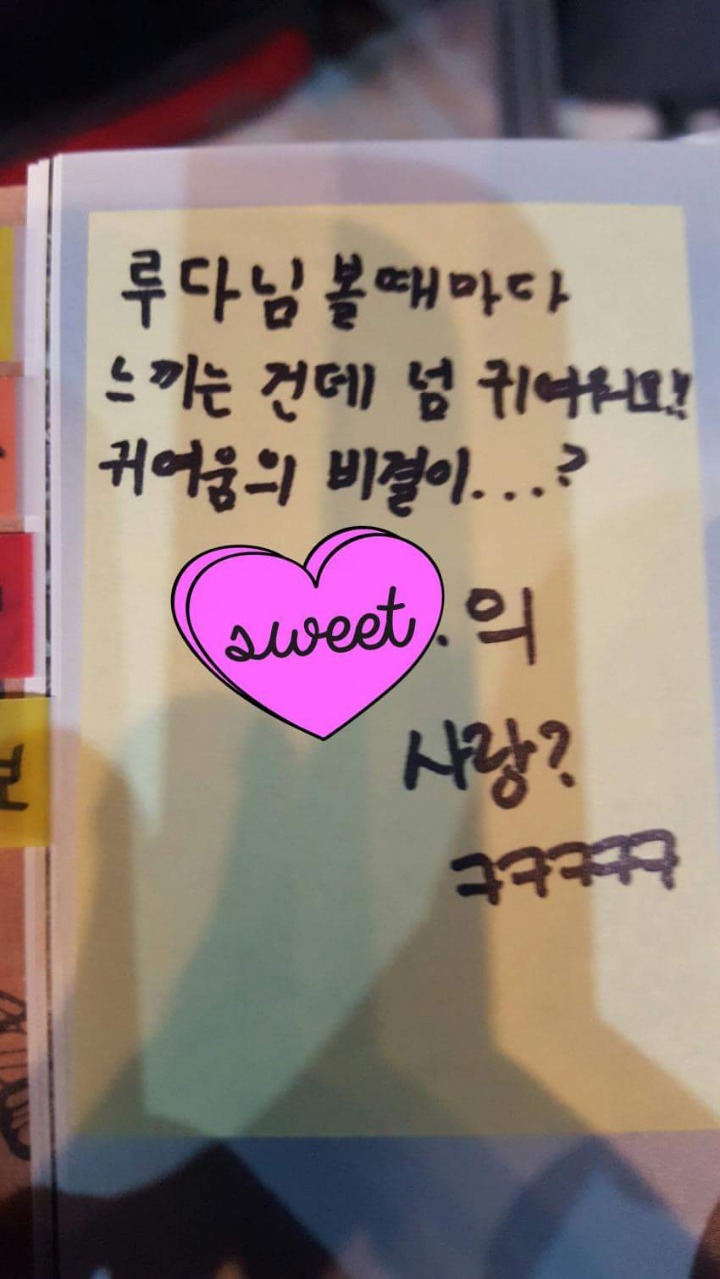 루다님 볼때마다
느끼는 건데 넘 귀여워요!!
귀여움의 비결이...?
sweet . 의
사랑?
ㅋㅋㅋㅋㅋ